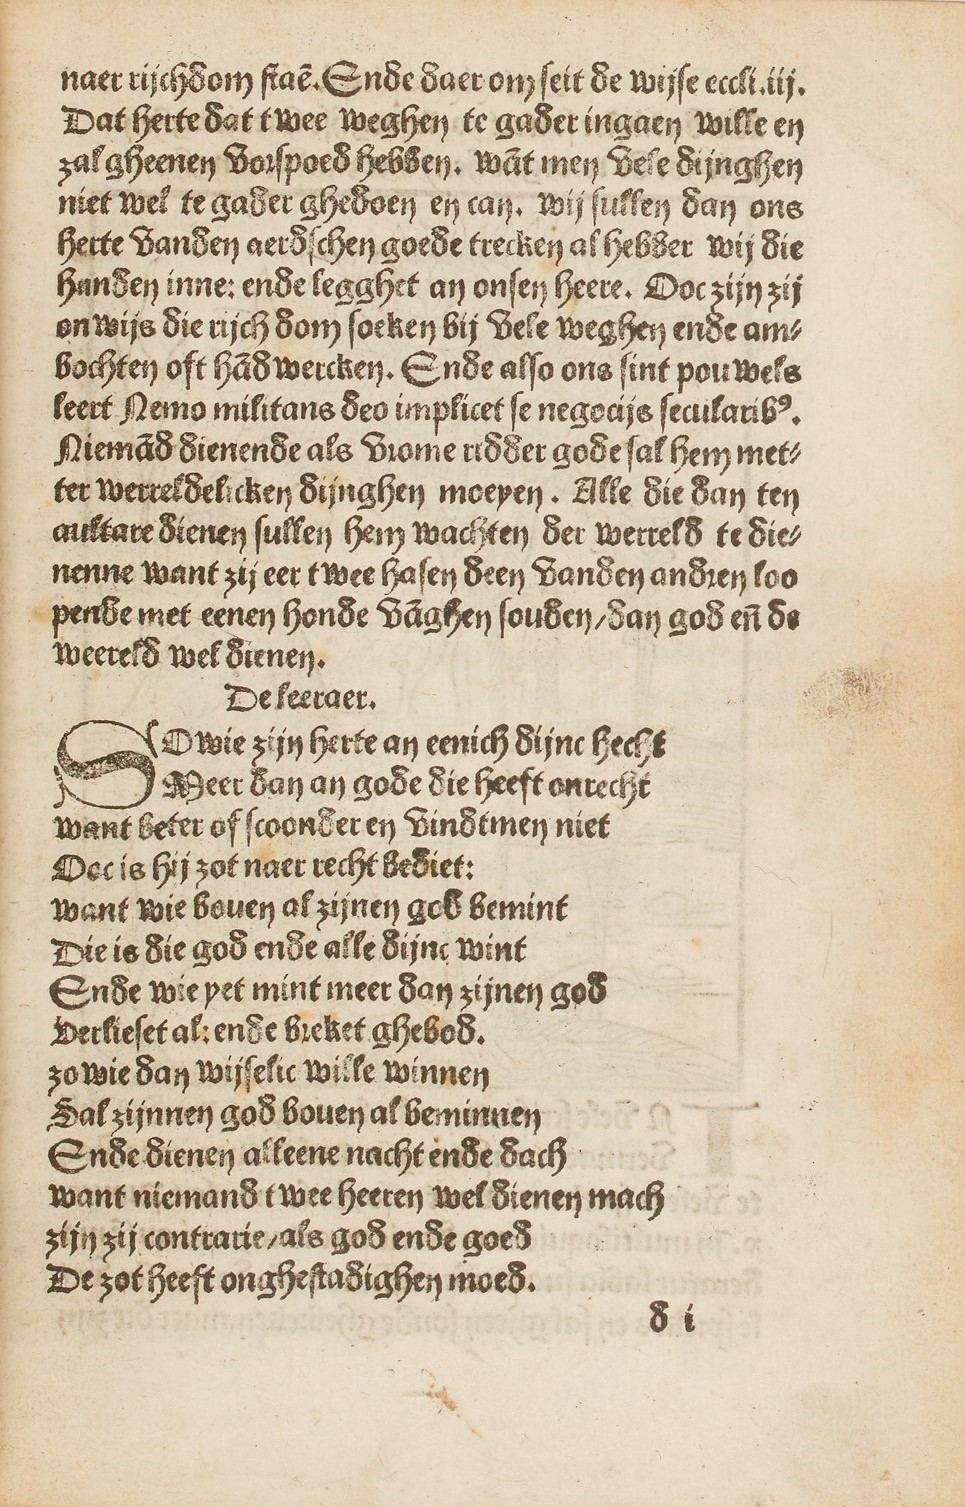 naer rijchdom staē. Ende daer om seit de wijse eccli.iij.
Dat herte dat twee weghen te gader ingaen wille en
zal gheenen vorspoed hebben. wāt men vele dijnghen
niet wel te gader ghedoen en can. wij sullen dan ons
herte vanden aerdschen goede trecken al hebber wij die
handen inne: ende legghet an onsen heere. Ooc zijn zij
onwijs die rijchdom soeken bij vele weghen ende am⸗
bochten oft hādwercken. Ende also ons sint pouwels
leert Nemo militans deo implicet se negocijs secularibꝰ.
Niemād dienende als vrome ridder gode sal hem met⸗
ter werreldelicken dijnghen moeyen. Alle die dan ten
aultare dienen sullen hem wachten der werreld te die⸗
nenne want zij eer twee hasen deen vanden andren loo
pende met eenen honde vāghen souden/dan god eñ de
weereld wel dienen.
De leeraer.
SOwie zijn herte an eenich dijnc hecht
Meer dan an gode die heeft onrecht
want beter of scoonder en vindtmen niet
Ooc is hij zot naer recht bediet:
want wie bouen al zijnen god bemint
Die is die god ende alle dijnc wint
Ende wie yet mint meer dan zijnen god
Verlieset al: ende breket ghebod.
zo wie dan wijselic wille winnen
Sal zijnnen god bouen al beminnen
Ende dienen alleene nacht ende dach
want niemand twee heeren wel dienen mach
zijn zij contrarie/als god ende goed
De zot heeft onghestadighen moed.
d i